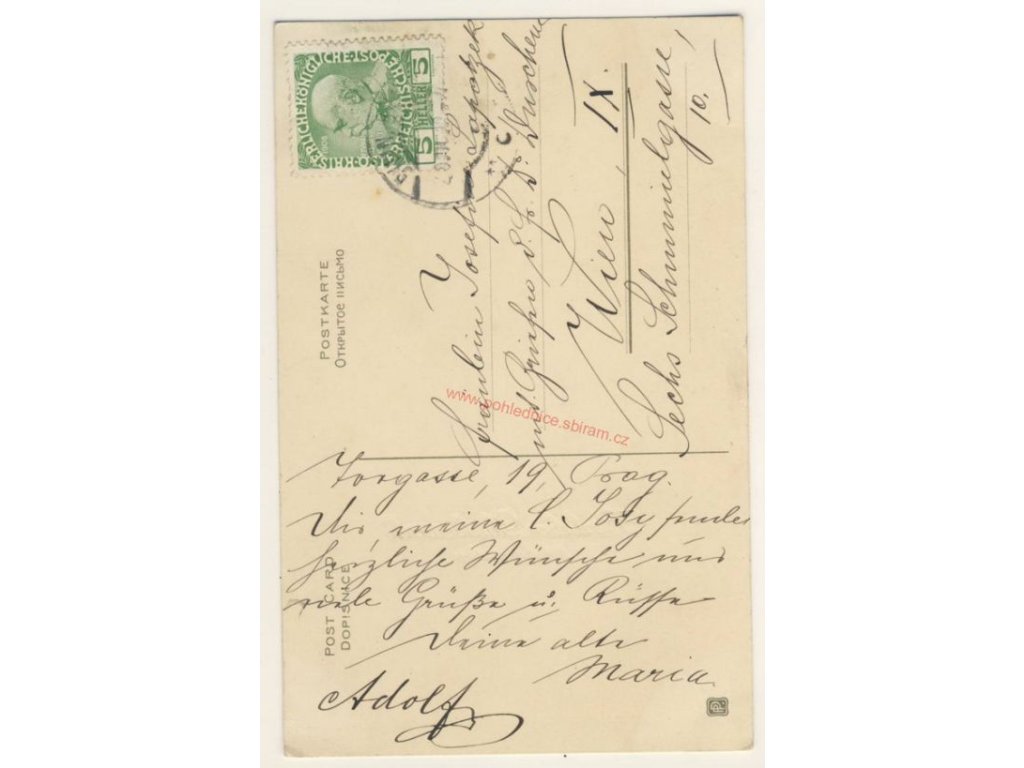 KAISERLICHEKÖNIGLICHE
ÖSTERREICHISCHE
5 HELLER 5
1908
POSTKARTE
ОТКРЫТОЕ ПИСЬМО
POST CARD
DOPISNICE
Fräulein Josefin
Wien, IX.
Sechs Schimmelgasse,
10.
www.pohlednice.sbiram.cz
Torgasse, 19, Prag.
Dir, meine l. Josy sendet
herzliche Wünsche und
viele Grüße u. Küsse
Deine alte
Maria
Adolf